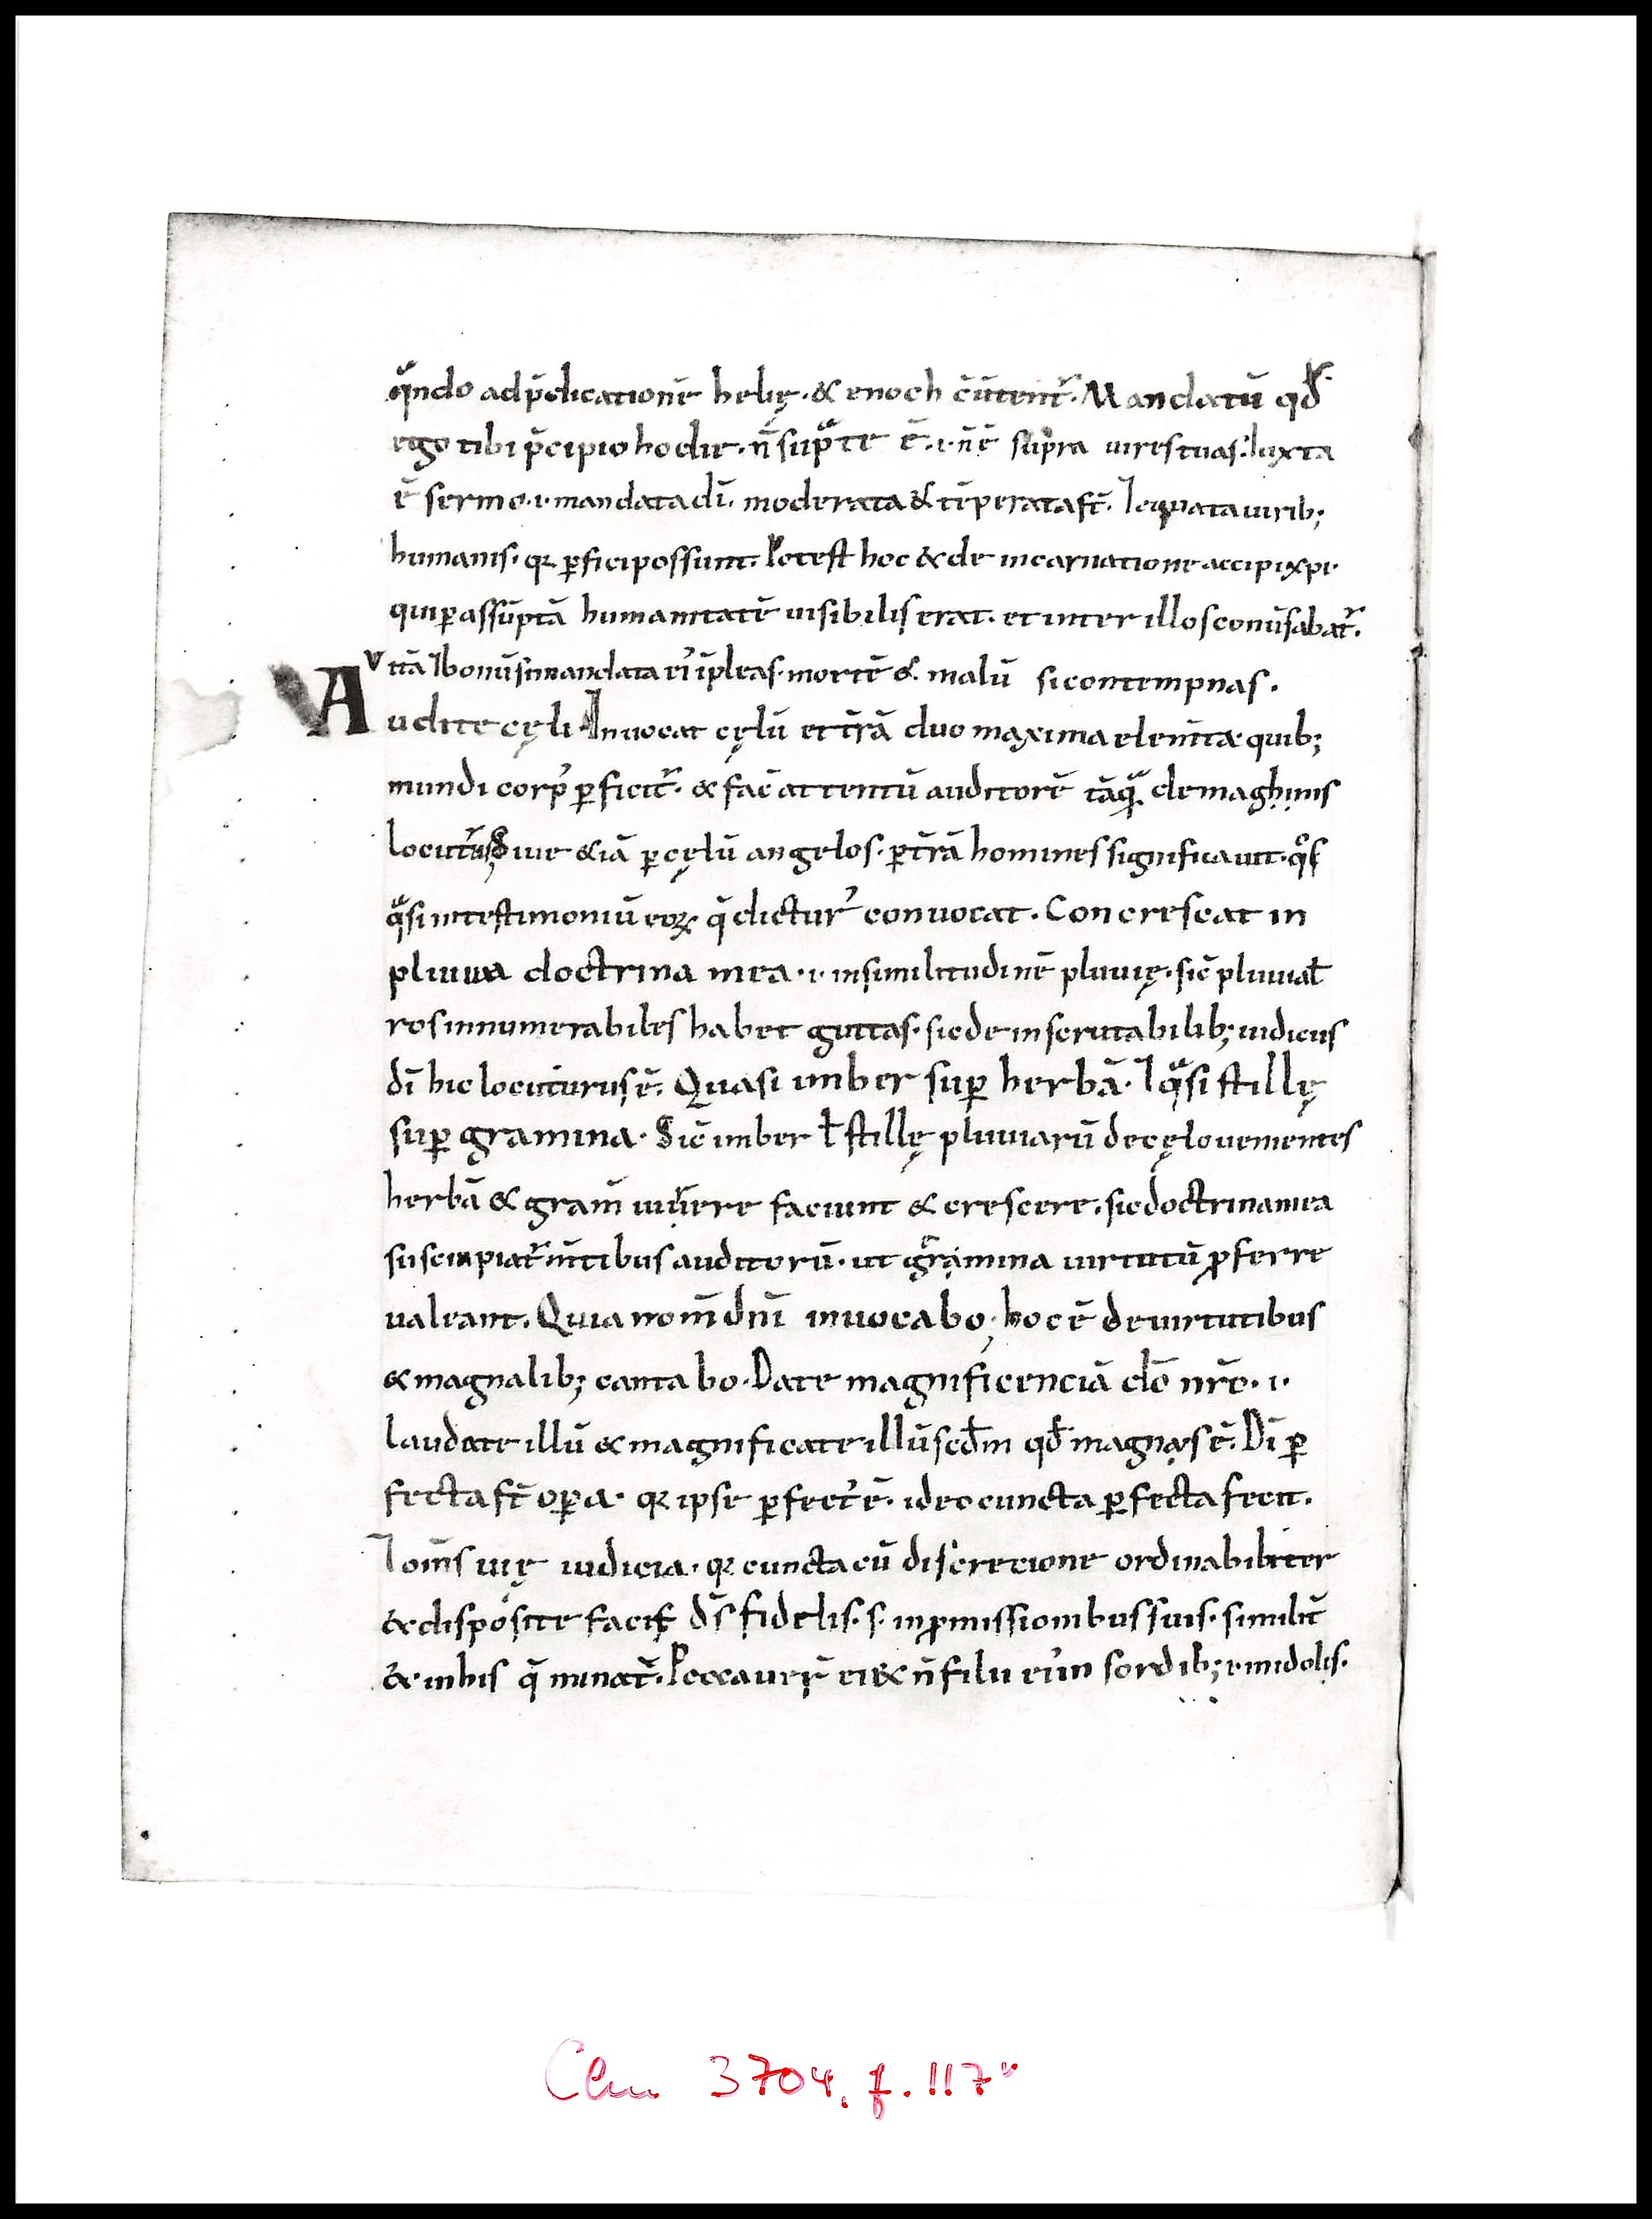 qͣndo adp̄dicationē helię· & enoch c̄ūtent᷑· Mandatū qđ
ego tibi p̄cipio hodie· n̄ supͣ te ē· i· n̄ ē supra uires tuas· Iuxta
ē sermo· i· mandata dī· moderata & tēperata st̄· ⁊ equata uirib;
humanis· qꝛ ꝑfici possunt· Potest hoc & de incarnatione accipi xp̄i·
qui ꝑ assūptā humanitatē uisibilis erat· et inter illos conūsabat᷑·
Vitā ⁊ bonū si mandata ei᾽ īpleas· mortē & malū si contempnas·
Audite cęli· Inuocat cęlū et tr̄ā duo maxima elem̄ta quib;
mundi corp᾽ ꝑficit᷑· & fac̄ attentū auditorē tāqͣ de magnis
locutur᾽ Siue &iā ꝑ cęlū angelos· ꝑ tr̄ā homines significauit· qͦs
qͣsi in testimoniū eoꝝ q̄ dictur᾽ conuocat· Concrescat in
pluuia doctrina mea· i· in similitudinē pluuię· sic̄ pluuia ł
ros innumerabiles habet guttas· sic de inscrutabilib; iudiciis
dī hic locuturus ē· Quasi imber suꝑ herbā· ⁊ qͣsi stillę
suꝑ gramina· Sic̄ imber ł stillę pluuiarū de cęlo uenientes
herbā & gram̄ uiuere faciunt & crescere· sic doctrina mea
suscipiat᷑ m̄tibus auditorū· ut gramina uirtutū ꝓferre
ualeant· Quia nom̄ dn̄i inuocabo· hoc ē de uirtutibus
& magnalib; cantabo· Date magnificenciā dō nr̄o· i·
laudate illū & magnificate illū scd̄m qđ magnus ē· Dī ꝑ
fecta st̄ oꝑa· qꝛ ipse ꝑfect᾽ ē· ideo cuncta ꝑfecta fecit·
⁊ om̄s uię iudicia· qꝛ cuncta cū discrecione ordinabiliter
& disposite facit· d̄s fidelis· s· in ꝓmissionibus suis· similit̄
& in his q̄ minat᷑· Peccauer̄ ei & n̄ filii ei᾽ in sordib; i· in idolis·
Clm 3704, f. 117ᵛ